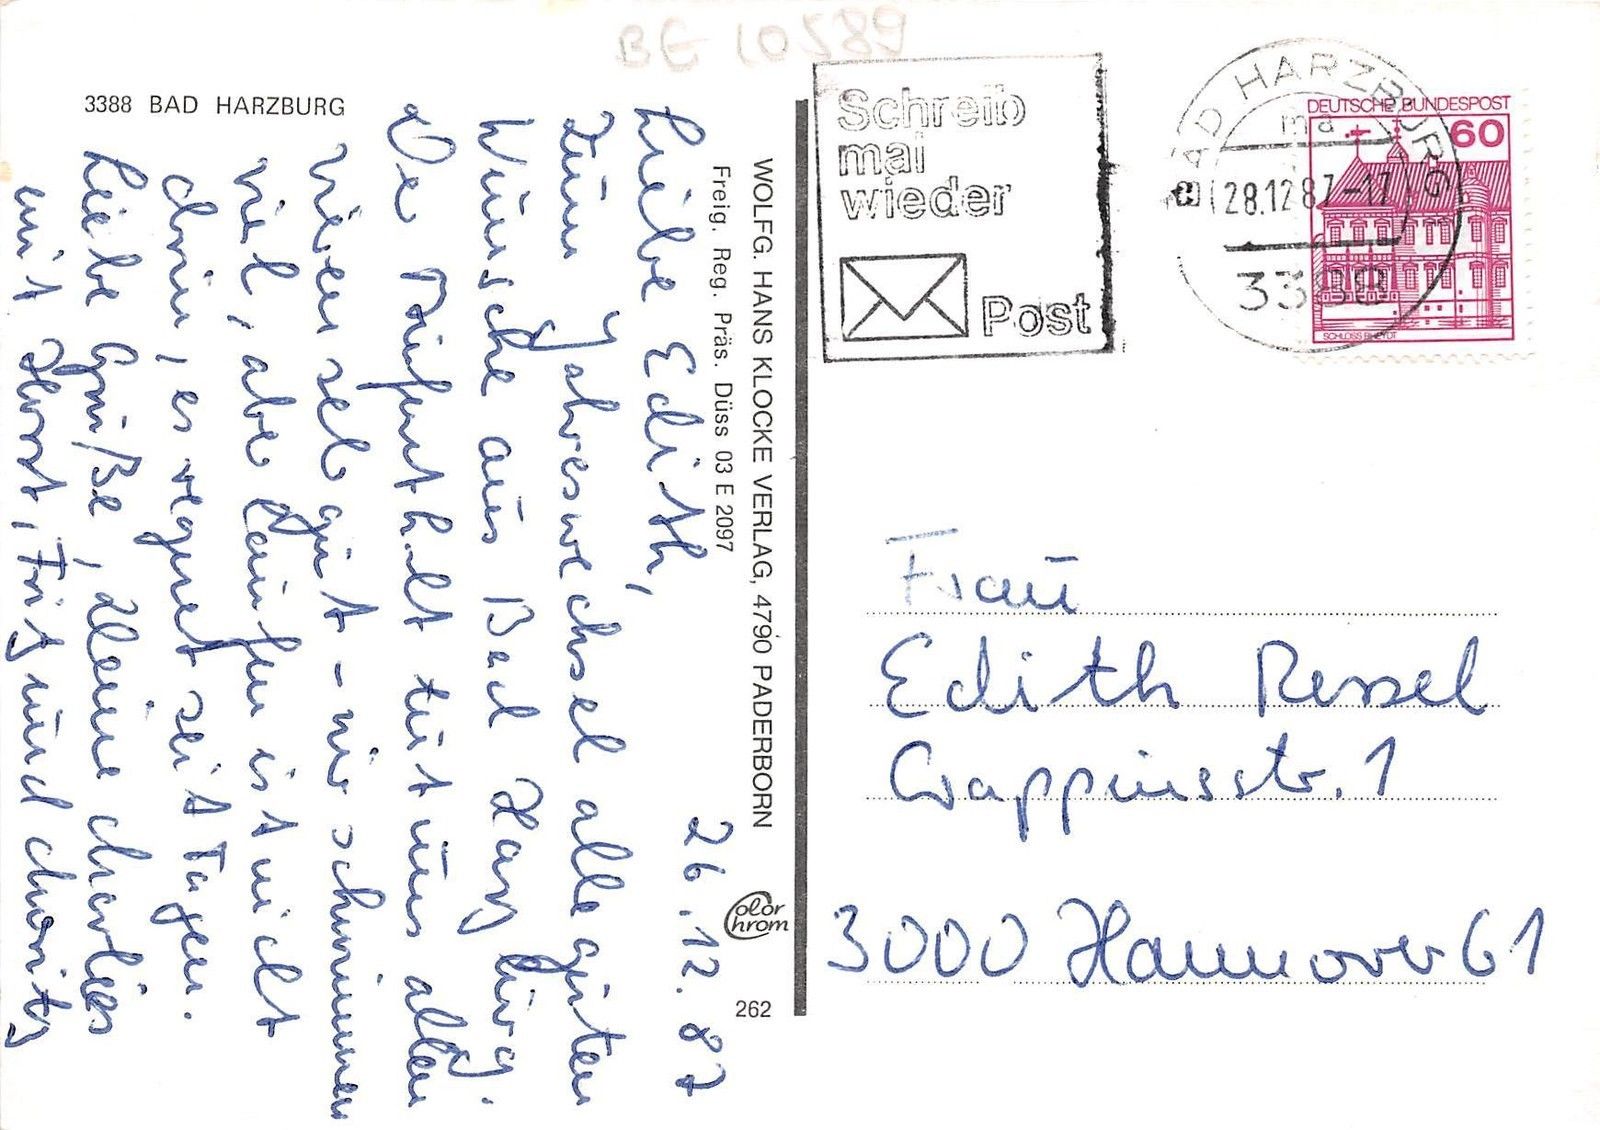 BE 10589
3388 BAD HARZBURG
26.12.87
Liebe Edith,
zum Jahreswechsel alle guten
Wünsche aus Bad Harzburg.
De Aufenthalt tut uns allen
vieren seh gut – wir schwimmen
viel, abe Laufen ist nicht
drin, es regnet seit Tagen.
Liebe Grüße, Deine Marlies
mit Horst, Fritz und
WOLFG. HANS KLOCKE VERLAG, 4790 PADERBORN
Freig. Reg. Präs. Düss 03 E 2097
Color
Chrom
262
Schreib
mal
wieder
Post
BAD HARZBURG
ma
28.12.87-17
3388
DEUTSCHE BUNDESPOST
60
SCHLOSS RHEYDT
Frau
Edith Ressel
Wappnisstr. 1
3000 Hannover 61